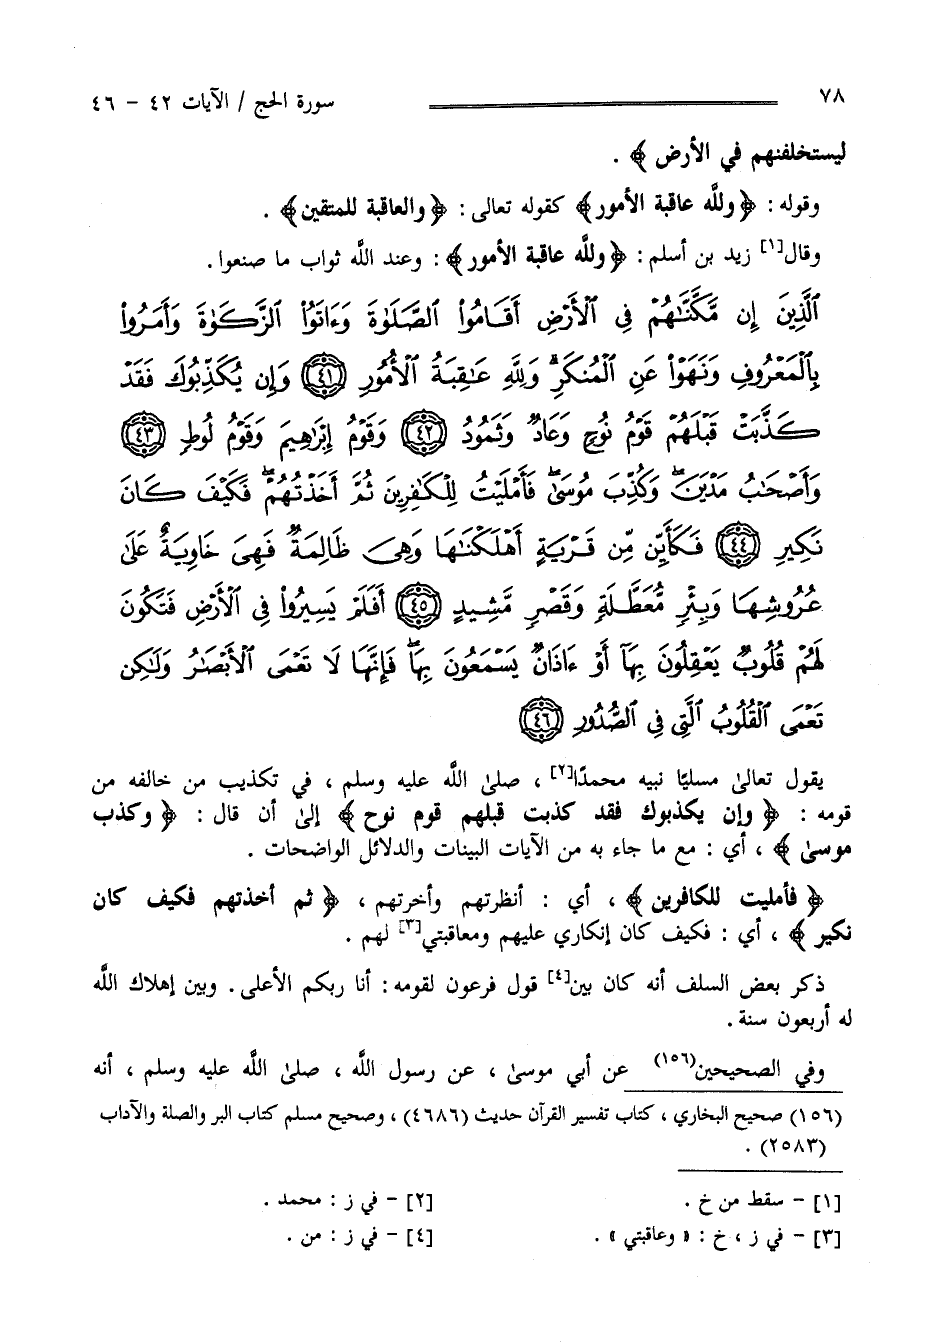 ٧٨ سورة الحج / الآيات ٤٢ - ٤٦
ليستخلفنهم في الأرض ﴾ .
وقوله : ﴿ ولله عاقبة الأمور ﴾ كقوله تعالى : ﴿ والعاقبة للمتقين ﴾ .
وقال[١] زيد بن أسلم : ﴿ ولله عاقبة الأمور ﴾ : وعند الله ثواب ما صنعوا .
ٱلَّذِينَ إِن مَّكَّنَّٰهُمْ فِى ٱلْأَرْضِ أَقَامُوا۟ ٱلصَّلَوٰةَ وَءَاتَوُا۟ ٱلزَّكَوٰةَ وَأَمَرُوا۟
بِٱلْمَعْرُوفِ وَنَهَوْا۟ عَنِ ٱلْمُنكَرِ ۗ وَلِلَّهِ عَٰقِبَةُ ٱلْأُمُورِ ٤١ وَإِن يُكَذِّبُوكَ فَقَدْ
كَذَّبَتْ قَبْلَهُمْ قَوْمُ نُوحٍ وَعَادٌ وَثَمُودُ ٤٢ وَقَوْمُ إِبْرَٰهِيمَ وَقَوْمُ لُوطٍ ٤٣
وَأَصْحَٰبُ مَدْيَنَ ۖ وَكُذِّبَ مُوسَىٰ فَأَمْلَيْتُ لِلْكَٰفِرِينَ ثُمَّ أَخَذْتُهُمْ ۖ فَكَيْفَ كَانَ
نَكِيرِ ٤٤ فَكَأَيِّن مِّن قَرْيَةٍ أَهْلَكْنَٰهَا وَهِىَ ظَالِمَةٌ فَهِىَ خَاوِيَةٌ عَلَىٰ
عُرُوشِهَا وَبِئْرٍ مُّعَطَّلَةٍ وَقَصْرٍ مَّشِيدٍ ٤٥ أَفَلَمْ يَسِيرُوا۟ فِى ٱلْأَرْضِ فَتَكُونَ
لَهُمْ قُلُوبٌ يَعْقِلُونَ بِهَآ أَوْ ءَاذَانٌ يَسْمَعُونَ بِهَا ۖ فَإِنَّهَا لَا تَعْمَى ٱلْأَبْصَٰرُ وَلَٰكِن
تَعْمَى ٱلْقُلُوبُ ٱلَّتِى فِى ٱلصُّدُورِ ٤٦
يقول تعالىٰ مسليًا نبيه محمدًا[٢] ، صلىٰ الله عليه وسلم ، في تكذيب من خالفه من
قومه : ﴿ وإن يكذبوك فقد كذبت قبلهم قوم نوح ﴾ إلىٰ أن قال : ﴿ وكذب
موسىٰ ﴾ ، أي : مع ما جاء به من الآيات البينات والدلائل الواضحات .
﴿ فأمليت للكافرين ﴾ ، أي : أنظرتهم وأخرتهم ، ﴿ ثم أخذتهم فكيف كان
نكير ﴾ ، أي : فكيف كان إنكاري عليهم ومعاقبتي[٣] لهم .
ذكر بعض السلف أنه كان بين[٤] قول فرعون لقومه : أنا ربكم الأعلى . وبين إهلاك الله
له أربعون سنة .
وفي الصحيحين(١٥٦) عن أبي موسىٰ ، عن رسول الله ، صلىٰ الله عليه وسلم ، أنه
(١٥٦) صحيح البخاري ، كتاب تفسير القرآن حديث (٤٦٨٦) ، وصحيح مسلم كتاب البر والصلة والآداب
(٢٥٨٣) .
[١] - سقط من خ . [٢] - في ز : محمد .
[٣] - في ز ، خ : « وعاقبتي » . [٤] - في ز : من .